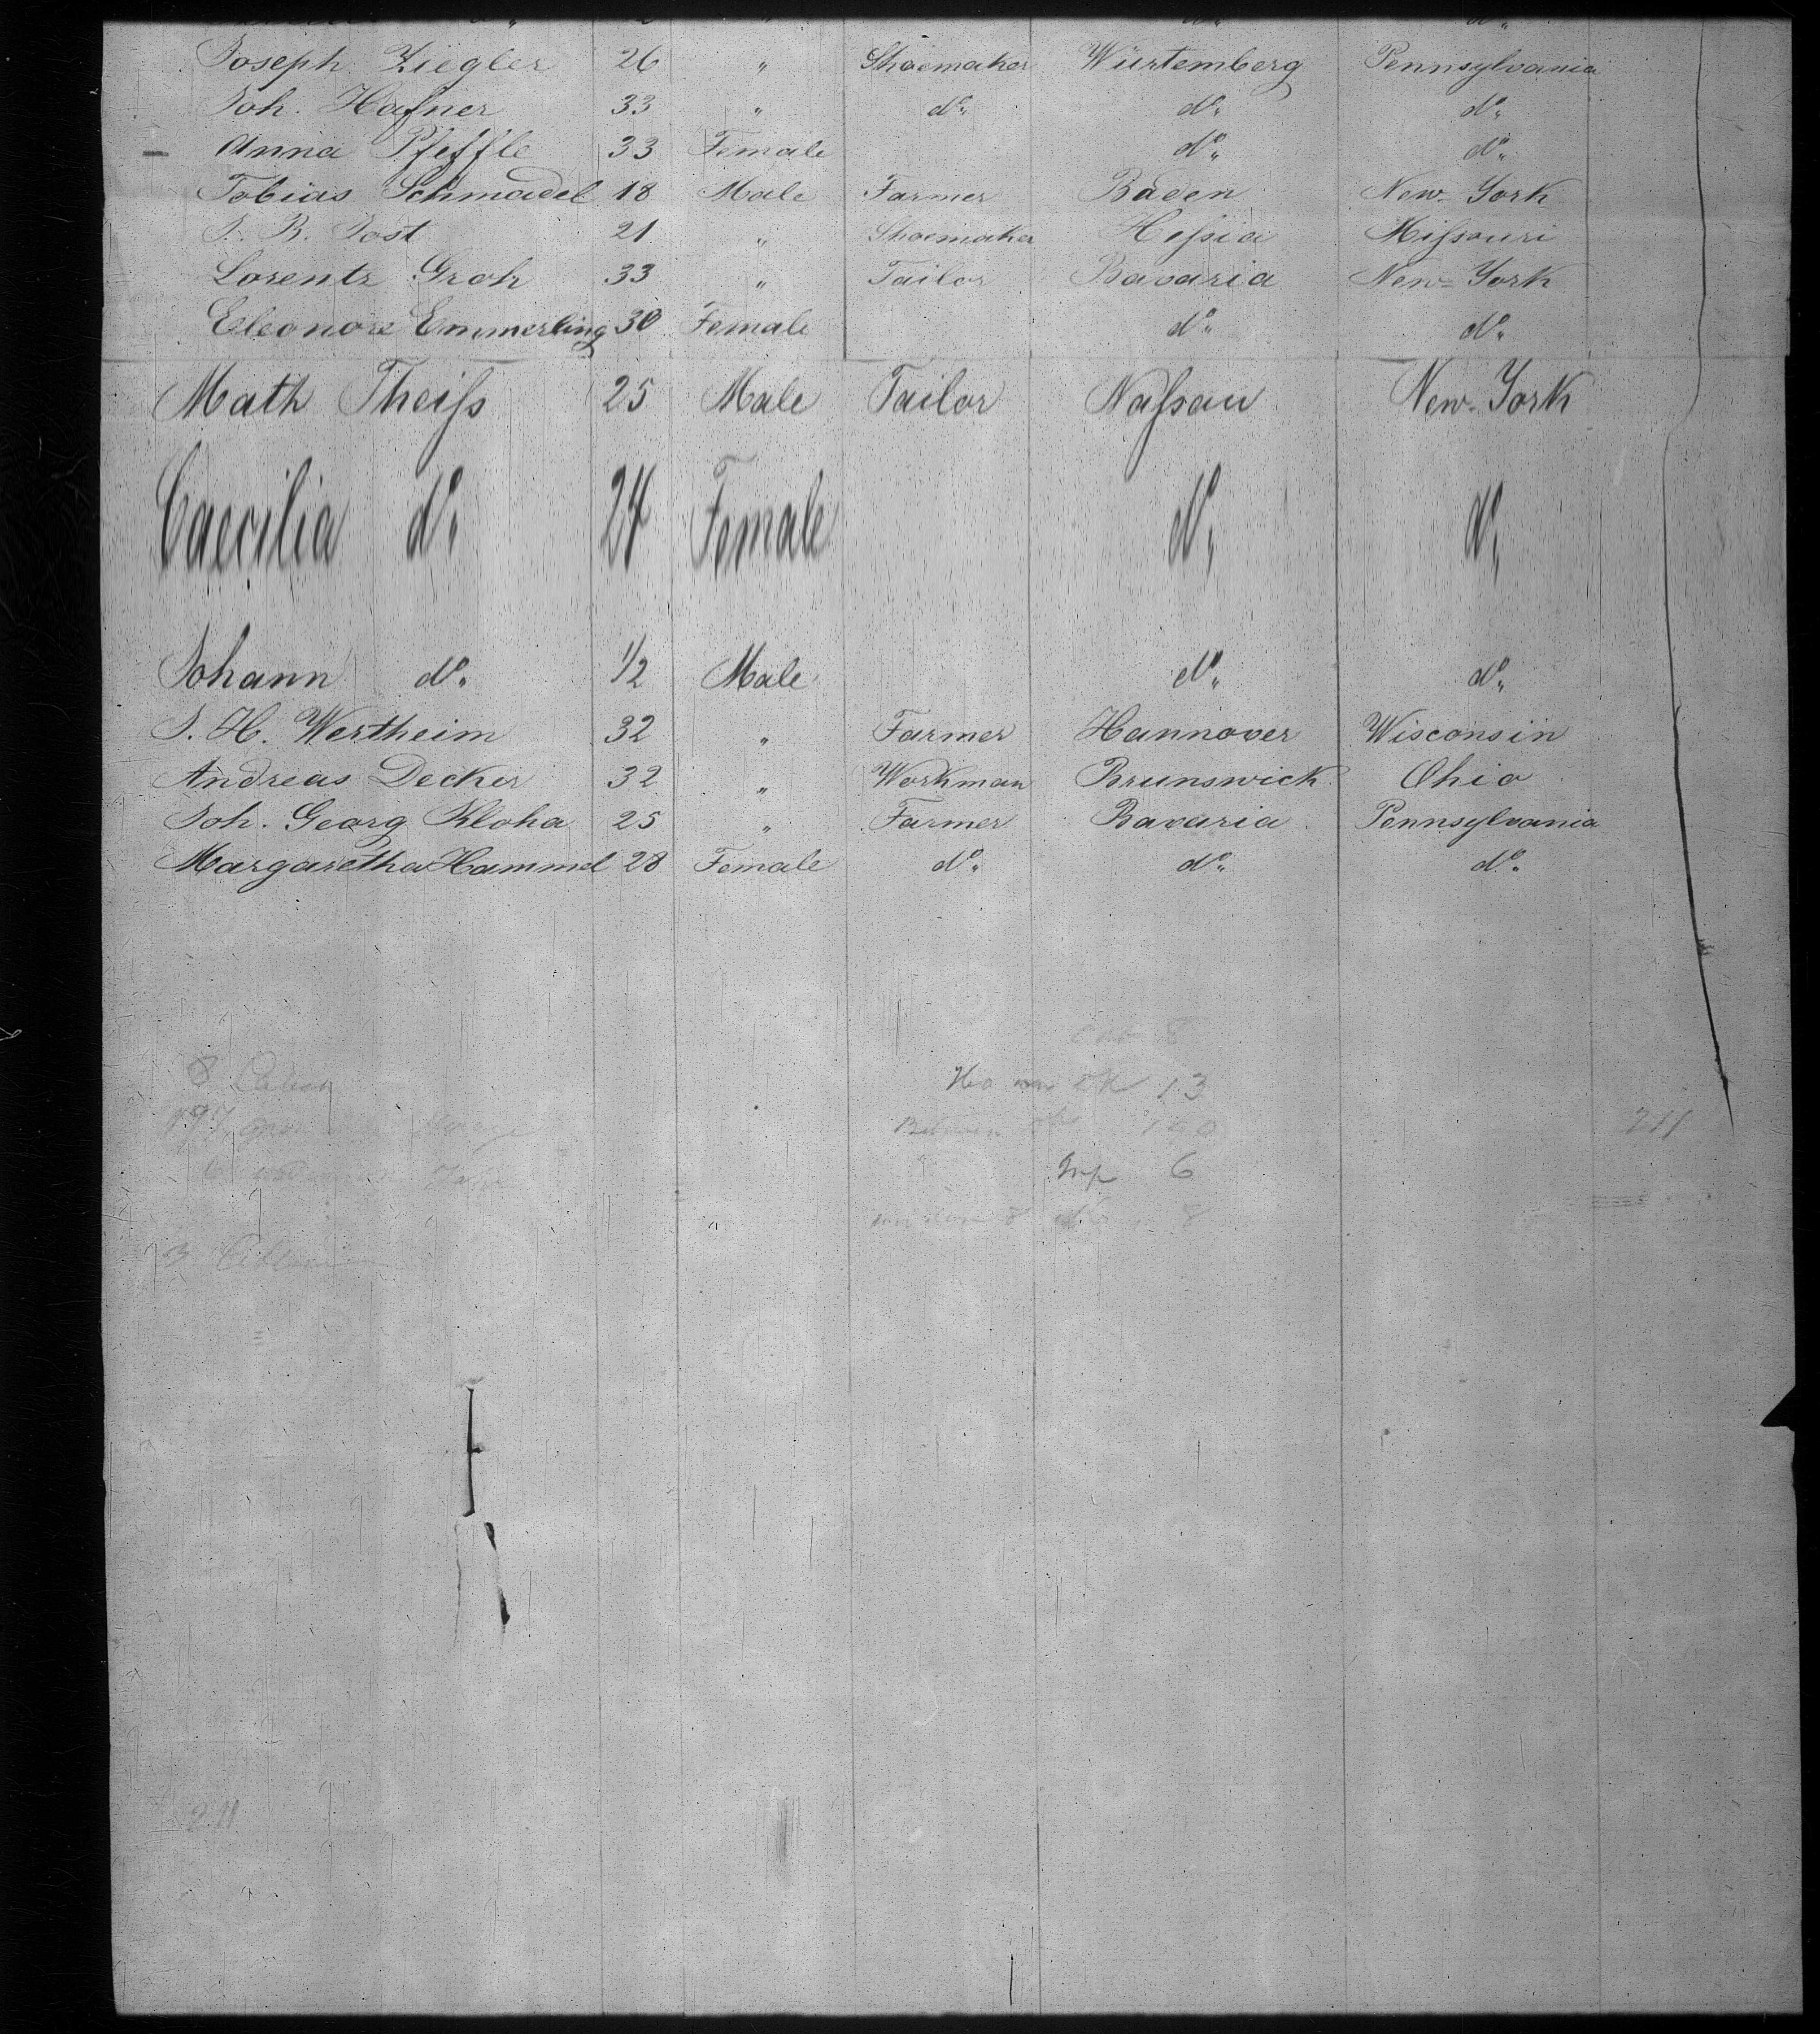 Joseph Ziegler 26 " Shoemaker Würtemberg Pennsylvania
Joh. Hafner 33 " do. do. do.
Anna Pfeffle 33 Female do. do.
Tobias Schmadel 18 Male Farmer Baden New-York
J. B. Jost 21 " Shoemaker Hessia Missouri
Lorentz Groh 33 " Tailor Bavaria New-York
Eleonore Emmerling 30 Female do. do.
Math Theiss 25 Male Tailor Nassau New-York
Caecilia do. 24 Female do. do.
Johann do. 1/2 Male do. do.
J. H. Wertheim 32 " Farmer Hannover Wisconsin
Andreas Decker 32 " Workman Brunswick Ohio
Joh. Georg Kloha 25 " Farmer Bavaria Pennsylvania
Margaretha Hammel 28 Female do. do. do.
8
13
197
211
6
8 8
3
211